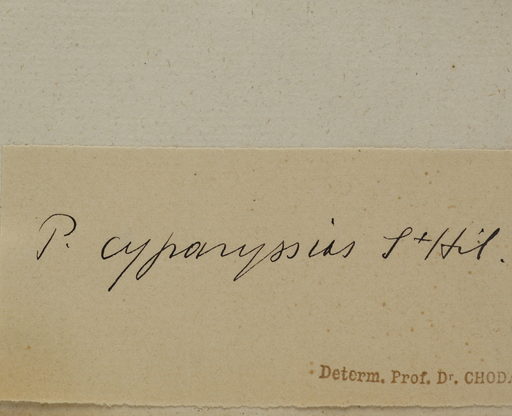 P. cyparyssias St Hil.
Determ. Prof. Dr. CHODA